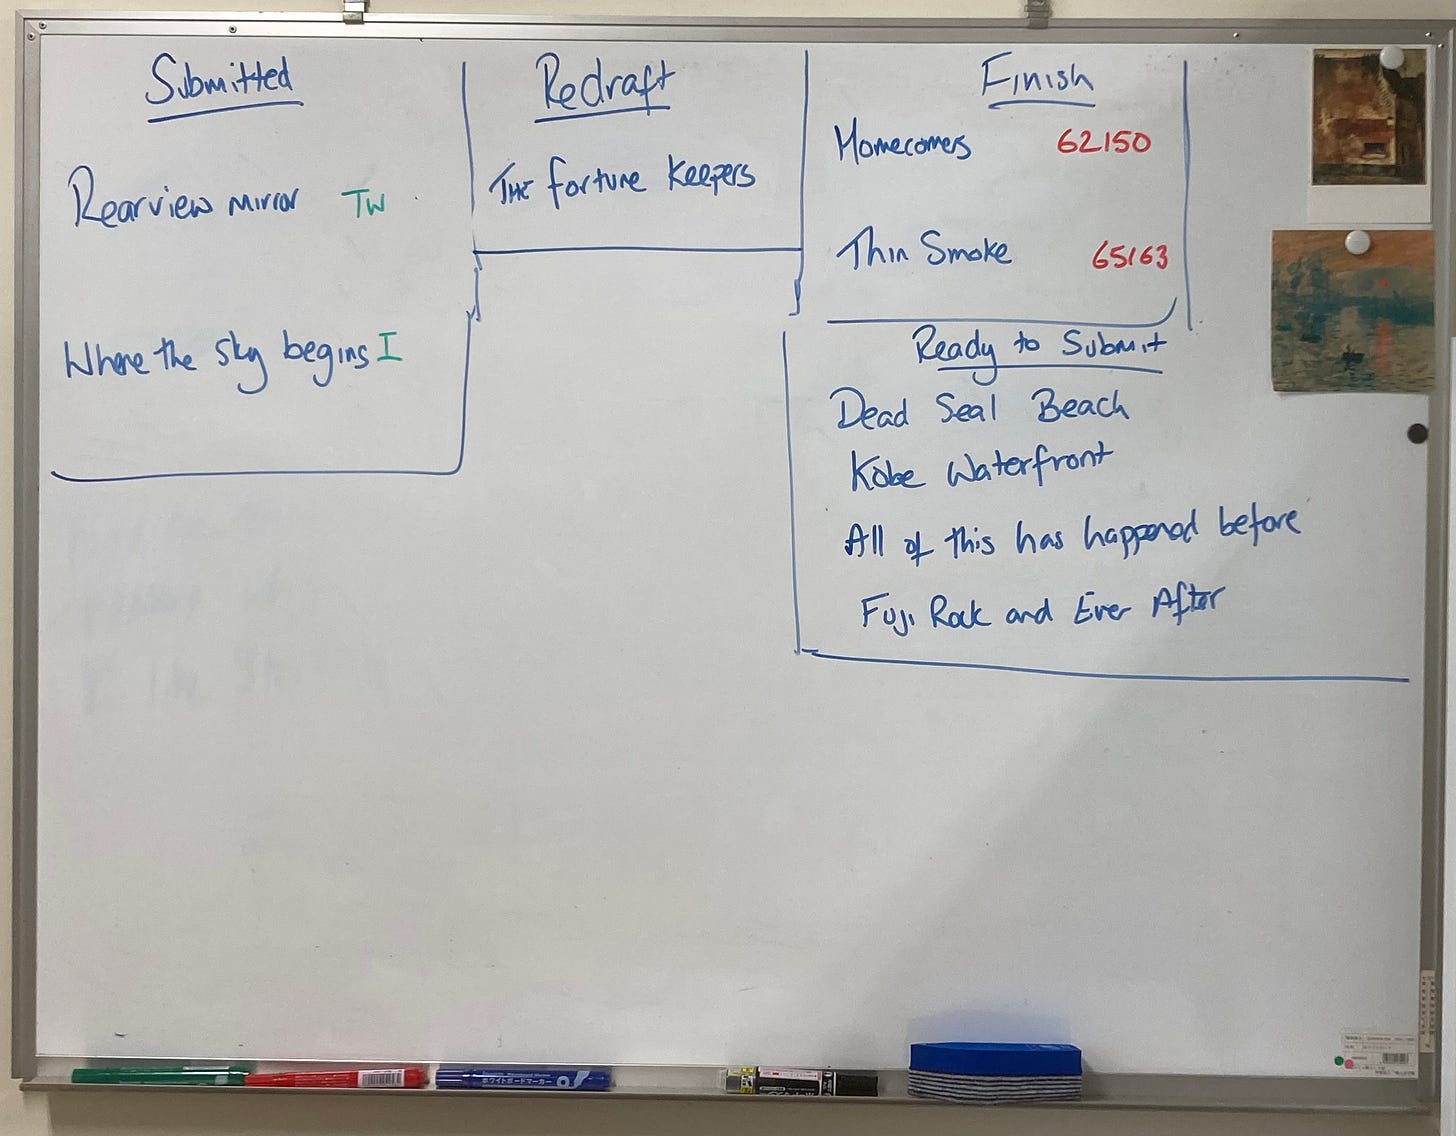 Submitted
Rearview mirror TW
Where the sky begins I
Redraft
THE Fortune Keepers
Finish
Homecomers 62150
Thin Smoke 65163
Ready to Submit
Dead Seal Beach
Kobe Waterfront
All of this has happened before
Fuji Rock and Ever After
ホワイトボードマーカー